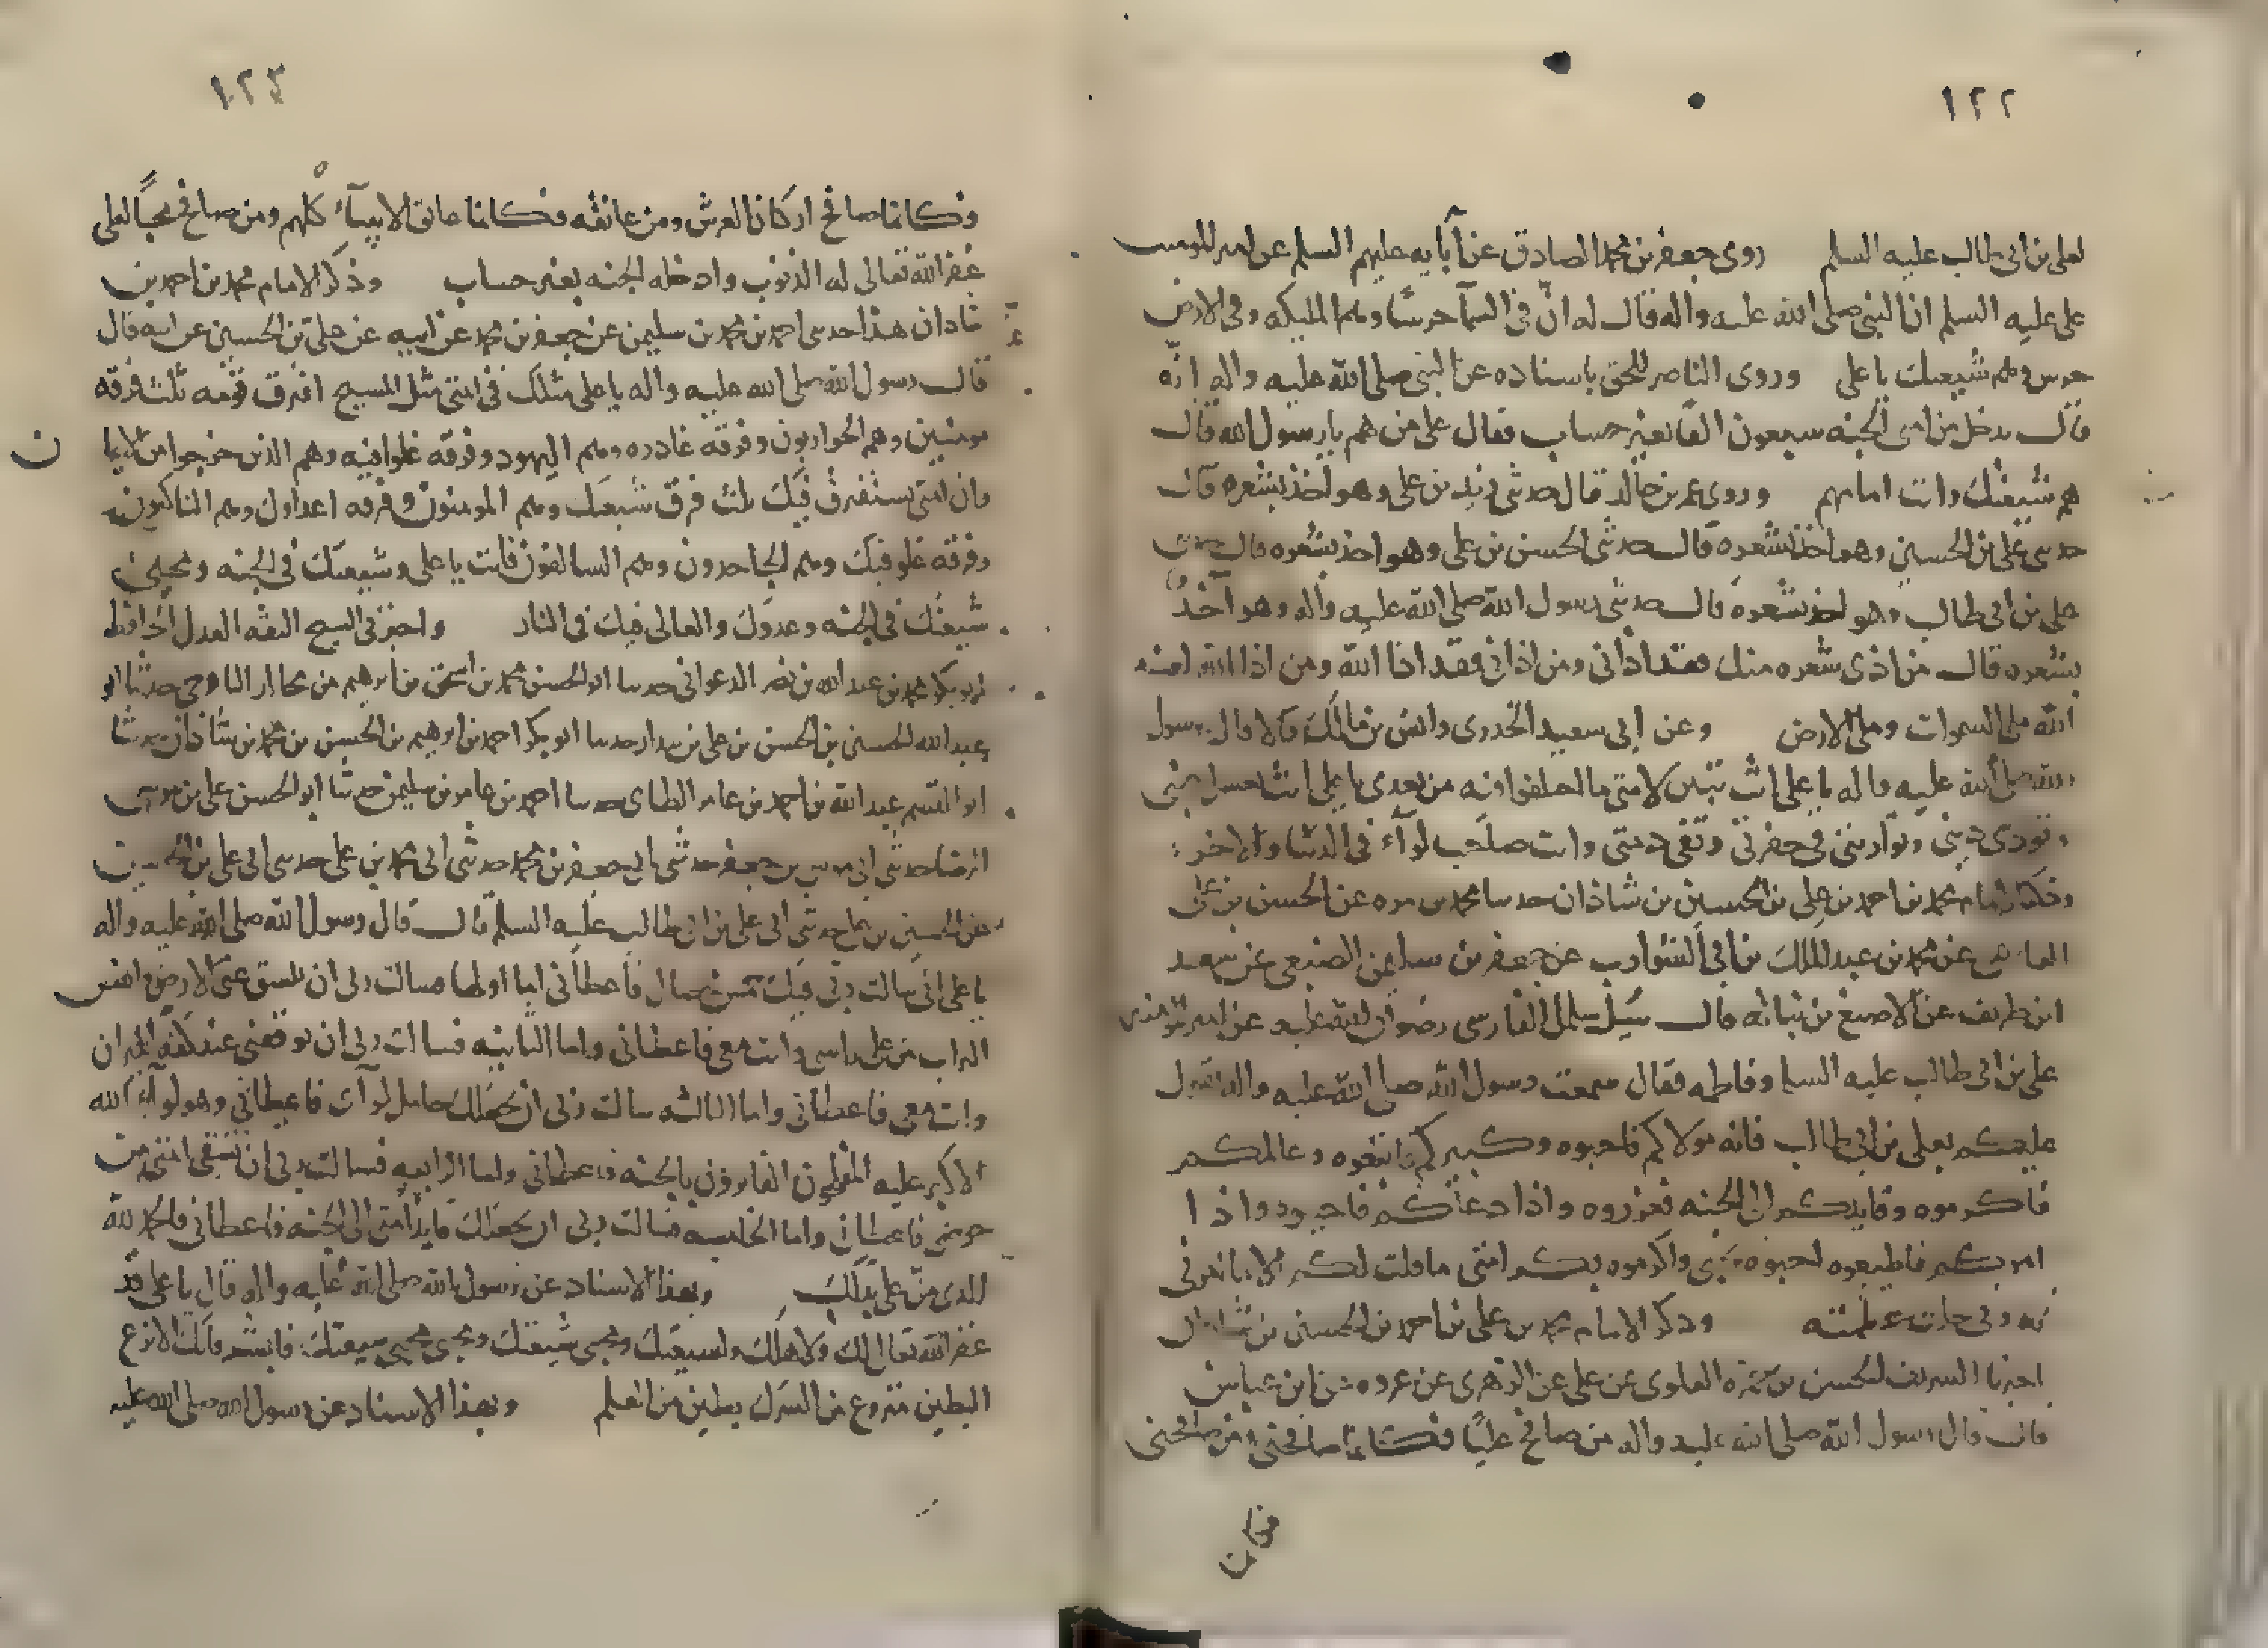 ١٢٢
لعلى بن ابى طالب عليه السلم روى جعفر بن محمد الصادق عن آبايه عليهم السلم عن امير المومنين
على عليه السلم ان النبى صلى الله عليه واله قال له ان فى السمآ حرسًا وهم المليكه وفى الارض
حرس وهم شيعتك يا على وروى الناصر للحق باسناده عن النبى صلى الله عليه واله انه
قال يدخل من امتى الجنه سبعون الفًا بغير حساب فقال على من هم يا رسول الله قال
هم شيعتك وانت امامهم وروى عمر بن خالد قال حدثنى زيد بن على وهو اخذ بشعره قال
حدثنى على بن الحسين وهو اخذ بشعره قال حدثنى الحسين بن على وهو اخذ بشعره قال حدثنى
على بن ابى طالب وهو اخذ بشعره قال حدثنى رسول الله صلى الله عليه واله وهو آخذٌ
بشعره قال من اذى شعره منك فقد اذانى ومن اذانى فقد اذا الله ومن اذا الله لعنه
الله ملى السموات وملى الارض وعن ابى سعيد الخدرى وانس بن مالك قالا قال رسول
الله صلى الله عليه واله يا على انت تبين لامتى ما اختلفوا فيه من بعدى يا على انت تغسل جثتى
وتودى دينى وتوارينى فى حفرتى وتفى بذمتى وانت صاحب لوآء فى الدنيا والاخره
وذكر الامام محمد بن احمد بن على بن الحسين بن شاذان حدثنا محمد بن مره عن الحسن بن على
عن محمد بن عبد الملك بن ابى الشوارب عن جعفر بن سليمن الضبعى عن سعد
ابن طريف عن الاصبغ بن نباته قال سُيِل سلمان الفارسى رضوان الله عليه عن امير المومنين
على بن ابى طالب عليه السلم وفاطمه فقال سمعت رسول الله صلى الله عليه واله يقول
عليكم بعلى بن ابى طالب فانه مولاكم فاحبوه وكبيركم فاتبعوه وعالمكم
فاكرموه وقايدكم الى الجنه فعزروه واذا دعاكم فاجيبوه واذا
امركم فاطيعوه احبوه بحبى واكرموه بكرامتى ما قلت لكم الا ما امرنى
به ربى جلت عظمته وذكر الامام محمد بن على بن احمد بن الحسين بن شاذان
اخبرنا الشريف الحسن بن حمزه العلوى عن على عن الزهرى عن عروه عن ابن عباس
قال قال رسول الله صلى الله عليه واله من صافح عليًا فكانما صافحنى ومن صافحنى
فكان
١٢٣
فكانما صافح اركان العرش ومن عانقه فكانما عانق الانبيآء كلهم ومن صافح محبًا لعلى
غفر الله تعالى له الذنوب وادخله الجنه بغير حساب وذكر الامام محمد بن احمد بن
شاذان هذا حدثنى احمد بن محمد بن سليمن عن جعفر بن محمد عن ابيه عن على بن الحسين عن ابيه قال
قال رسول الله صلى الله عليه واله يا على مثلك فى امتى مثل المسيح افترق قومه ثلث فرقه
مومنين وهم الحواريون وفرقه غادره وهم اليهود وفرقه غلوا فيه وهم الذين خرجوا من الايما
ن
وان امتى ستفترق فيك ثلث فرق شيعتك وهم المومنون وفرقه اعداوك وهم الناكثون
وفرقه غلو فيك وهم الجاحدون وهم السالفون فانت يا على وشيعتك فى الجنه ومحبى
شيعتك فى الجنه وعدوك والغالى فيك فى النار واخبرنى الشيخ الثقه العدل الحافظ
ابو بكر محمد بن عبد الله بن نصر حدثنا ابو الحسن محمد بن اسحق بن ابرهيم بن حدثنا ابو
عبد الله الحسين بن الحسن بن على بن بندار حدثنا ابو بكر احمد بن ابرهيم بن الحسين بن محمد بن شاذان حدثنا
ابو القسم عبد الله بن احمد بن عامر الطاى حدثنا احمد بن عامر بن سليمن حدثنا ابو الحسن على بن موسى
الرضا حدثنى ابى موسى بن جعفر حدثنى ابى جعفر بن محمد حدثنى ابى محمد بن على حدثنى ابى على بن الحسين
عن الحسين بن على حدثنى ابى على بن ابى طالب عليه السلم قال قال رسول الله صلى الله عليه واله
يا على انى سالت ربى فيك خمس خصال فاعطانى اما اولها سالت ربى ان تنشق عنى الارض وانفض
التراب عن راسى وانت معى فاعطانى واما الثانيه فسالت ربى ان يوقفنى عند كفه الميزان
وانت معى فاعطانى واما الثالثه سالت ربى ان يجعلك حامل لوآى فاعطانى وهو لوآء الله
الاكبر عليه المفلحون الفايزون بالجنه فاعطانى واما الرابعه فسالت ربى ان تسقى امتى من
حوضى فاعطانى واما الخامسه فسالت ربى ان يجعلك قايد امتى الى الجنه فاعطانى فالحمد لله
الذى من على بذلك وبهذا الاسناد عن رسول الله صلى الله عليه واله قال يا على قد
غفر الله تعالى لك ولاهلك ولشيعتك ومحبى شيعتك ومحبى محبى شيعتك فابشر فانك الانزع
البطين منزوع من الشرك بطين من العلم وبهذا الاسناد عن رسول الله صلى الله عليه